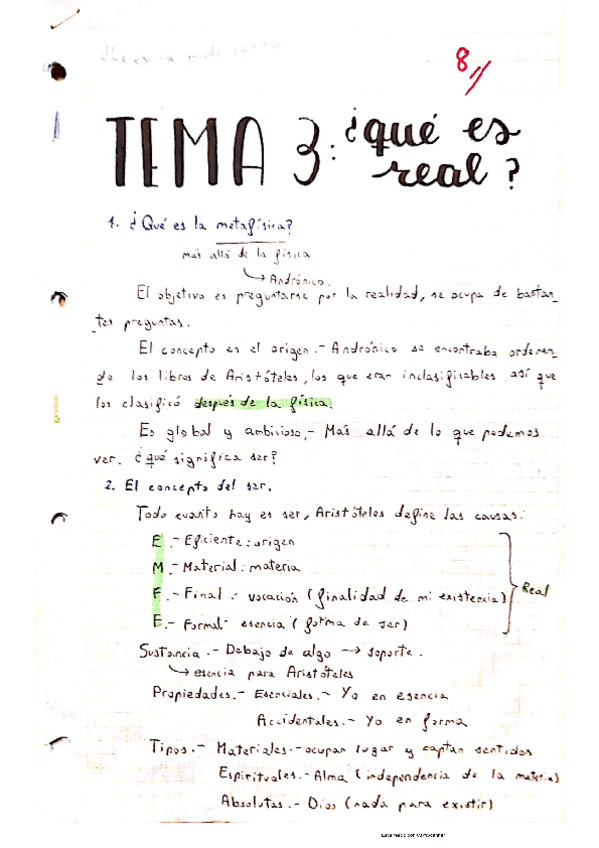 8
TEMA 3: ¿qué es
real?
1. ¿Qué es la metafísica?
más allá de la física
↳ Andrónico.
El objetivo es preguntarse por la realidad, se ocupa de bastan_
_tes preguntas.
El concepto es el origen.- Andrónico se encontraba ordenan_
do los libros de Aristóteles, los que eran inclasificables así que
los clasificó después de la física.
Es global y ambicioso.- Más allá de lo que podemos
ver. ¿qué significa ser?
2. El concepto del ser.
Todo cuanto hay es ser, Aristóteles define las causas:
E.- Eficiente: origen
M.- Material: materia
F.- Final.- vocación (finalidad de mi existencia) Real
F.- Formal- esencia (forma de ser)
Sustancia.- Debajo de algo → soporte.
↳ esencia para Aristóteles
Propiedades.- Esenciales.- Yo en esencia
Accidentales.- Yo en forma
Tipos.- Materiales.- ocupan lugar y captan sentidos
Espirituales.- Alma (independencia de la materia)
Absolutas.- Dios (nada para existir)